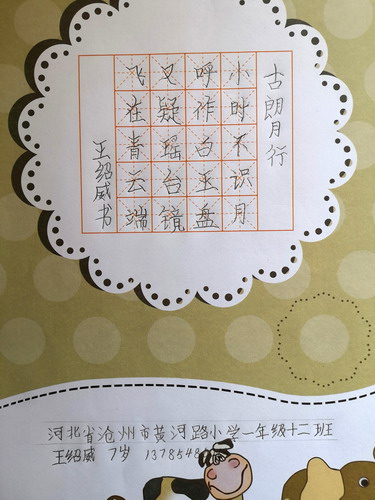 古朗月行
小时不识月
呼作白玉盘
又疑瑶台镜
飞在青云端
王绍威书
河北省沧州市黄河路小学一年级十二班
王绍威 7岁